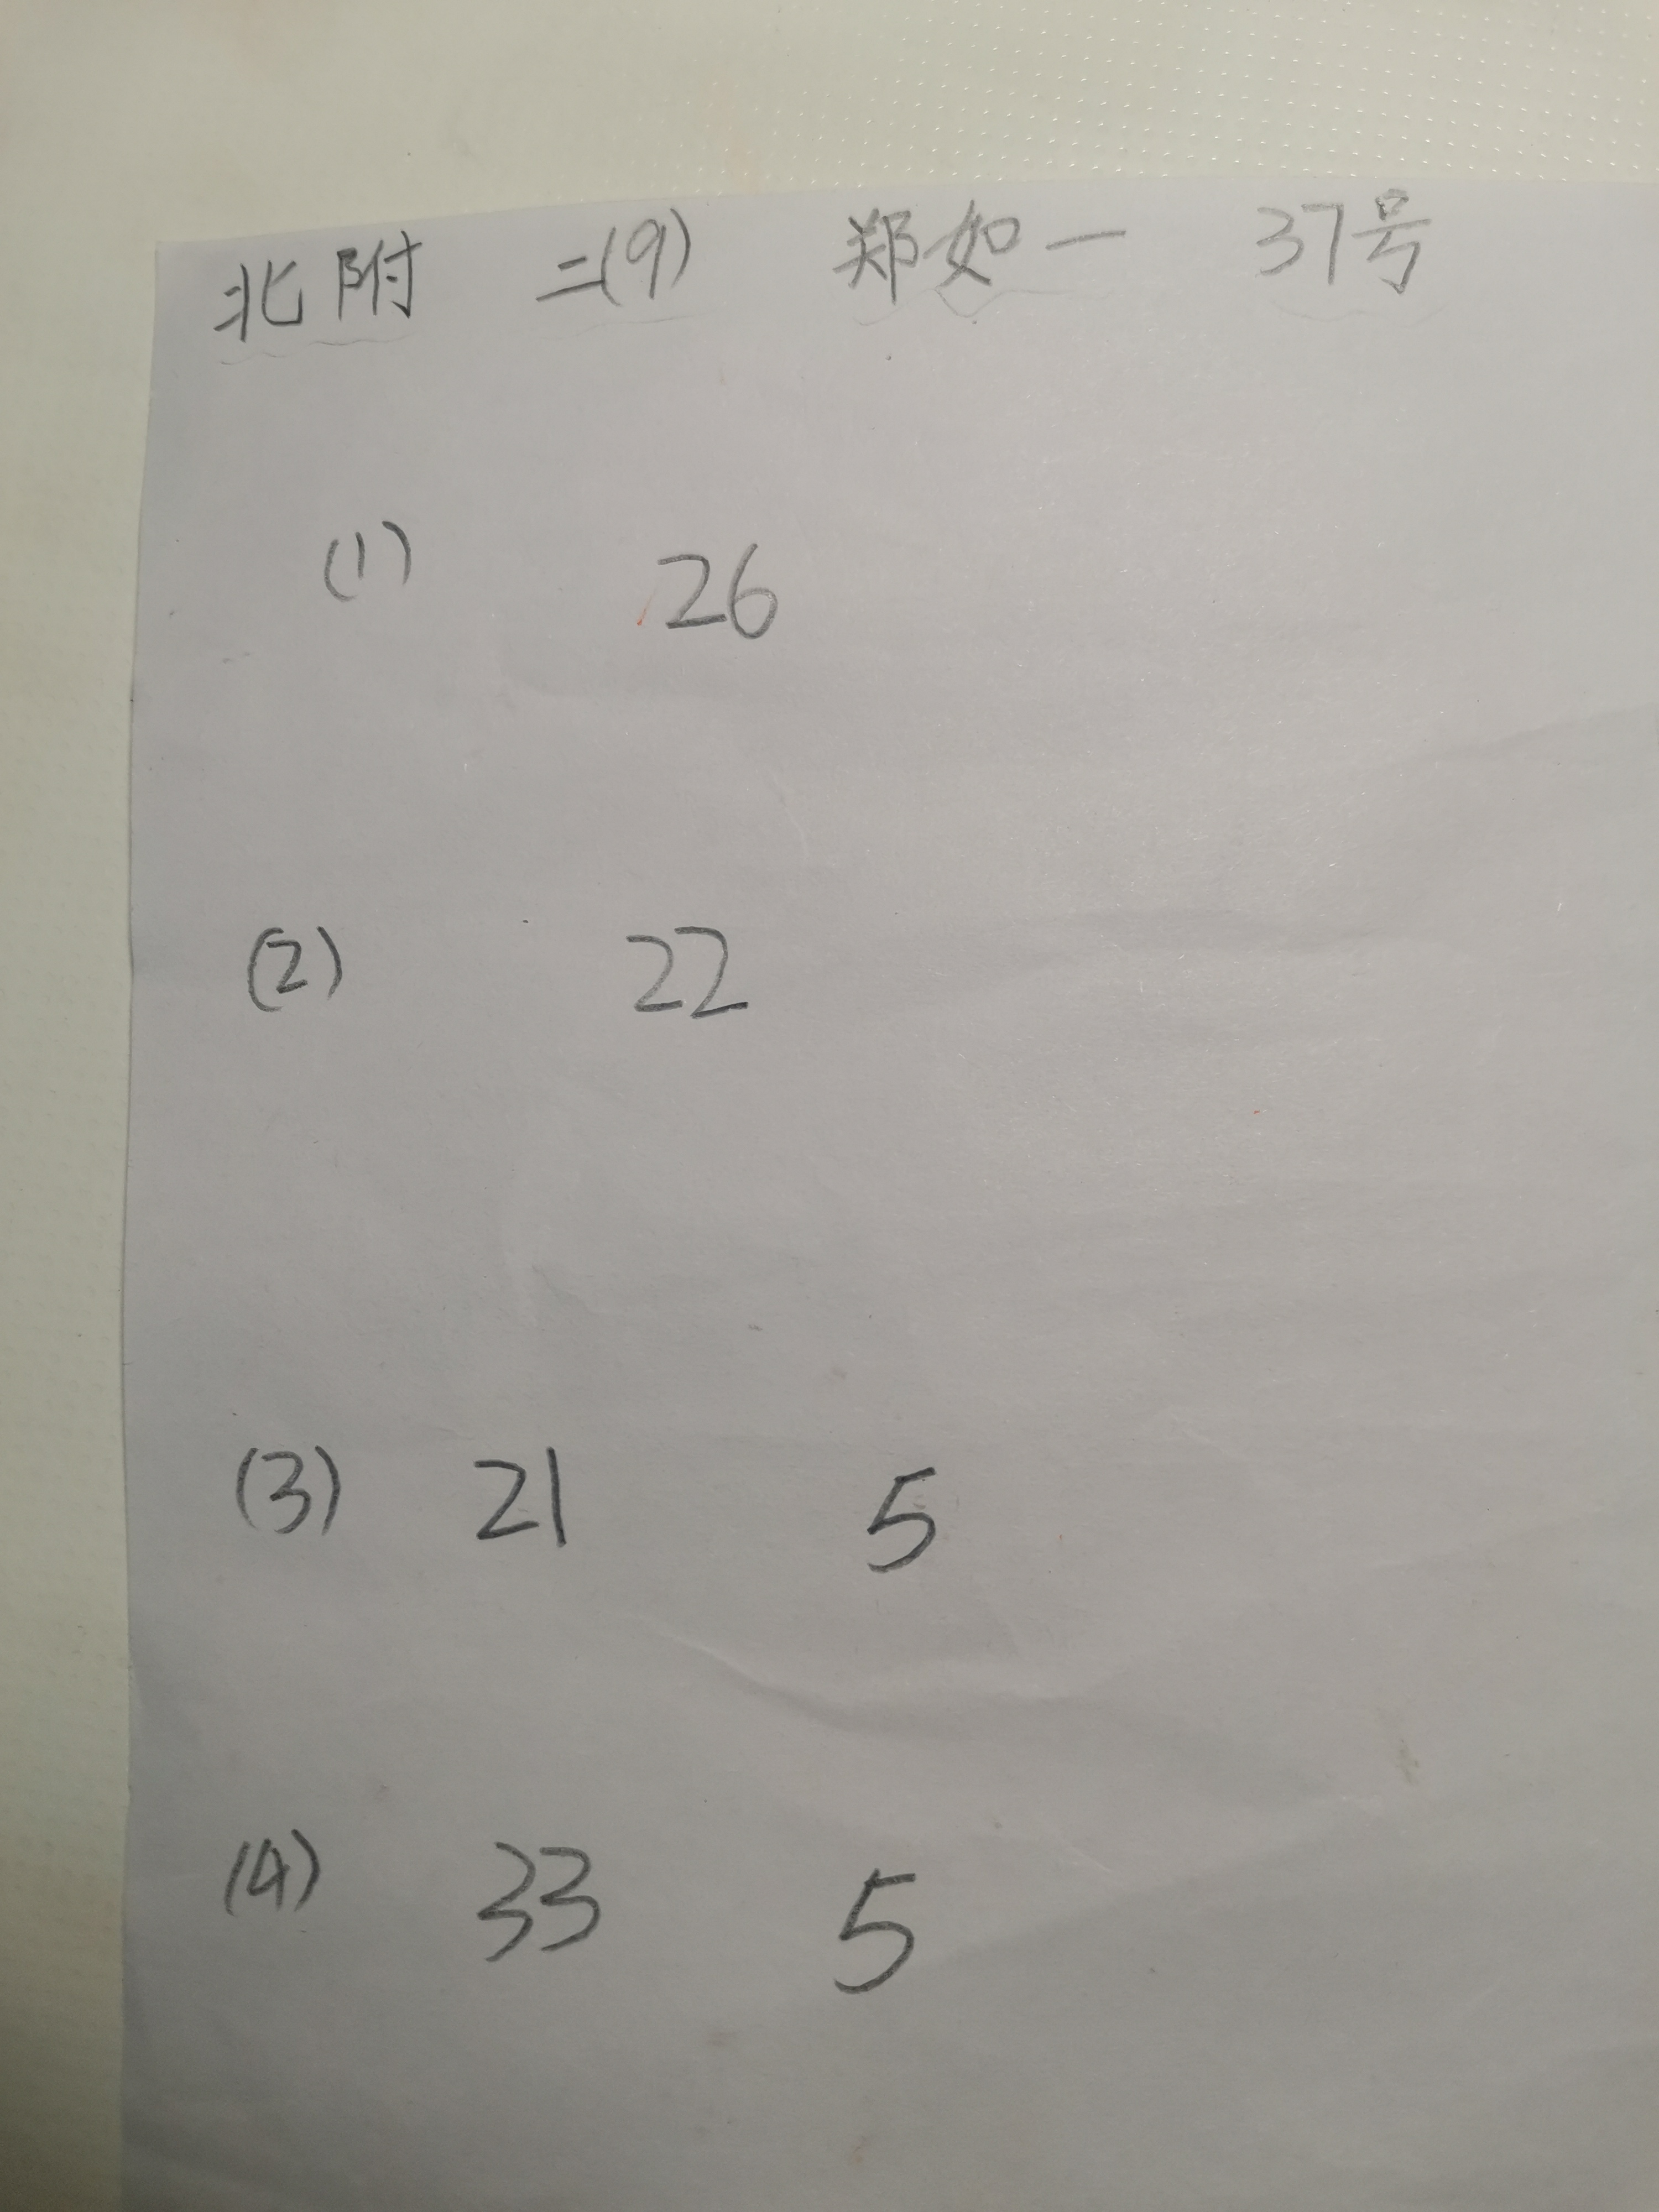 北附 二(9) 郑如一 37号
(1) 26
(2) 22
(3) 21 5
(4) 33 5